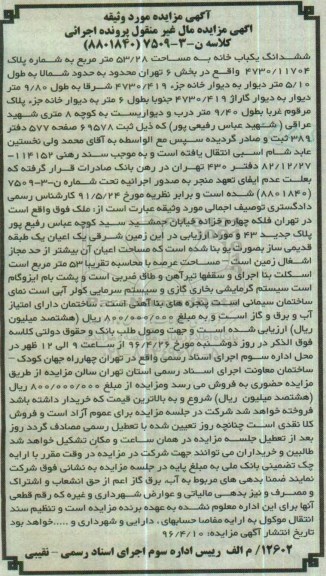 آگهی مزایده مورد وثیقه
آگهی مزایده مال غیر منقول پرونده اجرائی
کلاسه ن-۳-۷۵۰۹ (۸۸۰۱۸۴۰)
ششدانگ یکباب خانه به مساحت ۵۳/۲۸ متر مربع به شماره پلاک
۴۷۳۰/۱۱۷۰۴ واقع در بخش ۶ تهران محدود به حدود شمالا به طول
۵/۱۰ متر دیوار به دیوار خانه جزء ۴۷۳۰/۴۱۹ شرقا به طول ۹/۸۰ متر
دیوار به دیوار گاراژ ۴۷۳۰/۴۱۹ جنوبا بطول ۶ متر به دیوار خانه جزء پلاک
مرقوم غربا بطول ۹/۴۰ متر درب و دیواریست به کوچه ۸ متری شهید
عراقی (شهید عباس رفیع پور) که ذیل ثبت ۶۹۵۷۸ صفحه ۵۷۷ دفتر
۳۸۹ ثبت و صادر گردیده سپس مع الواسطه به آقای محمد ولی نخستین
عابد شام اسبی انتقال یافته است و به موجب سند رهنی ۱۱۴۱۵۲-
۸۲/۱۲/۲۷ دفتر ۴۳۰ تهران در رهن بانک صادرات قرار گرفته که
بعلت عدم ایفای تعهد منجر به صدور اجرائیه تحت شماره ن-۳-۷۵۰۹
(۸۸۰۱۸۴۰) شده است و برابر نظریه مورخ ۹۱/۵/۲۴ کارشناس رسمی
دادگستری توصیف اجمالی مورد وثیقه عبارت است از: ملک فوق واقع است
در تهران فلکه چهارم خزانه خیابان جمشید سید کوچه عباس رفیع پور
پلاک جدید ۴۳ و مورد ارزیابی در این زمین شرقی یک اعیان یک طبقه
قدیمی ساز بصورت یو بنا شده است که مساحت اعیان آن بیشتر از حد مجاز
اشغال زمین است – مساحت عرصه با محاسبه تقریبا ۵۳ متر مربع است
اسکلت بنا اجرای و سقفها تیرآهن و طاق ضربی است و پشت بام ایزوگام
است سیستم گرمایشی بخاری گازی و سیستم سرمایی کولر آبی است نمای
ساختمان سیمانی است پنجره های بنا آهنی است. ساختمان دارای امتیاز
آب و برق و گاز است و به مبلغ ۸۰۰/۰۰۰/۰۰۰ ریال (هشتصد میلیون
ریال) ارزیابی شده است و جهت وصول طلب بانک و حقوق دولتی کلاسه
فوق الذکر در روز دوشنبه مورخ ۹۶/۴/۲۶ از ساعت ۹ الی ۱۲ ظهر در
محل اداره سوم اجرای اسناد رسمی واقع در تهران چهارراه جهان کودک –
ساختمان معاونت اجرای اسناد رسمی استان تهران سالن مزایده از طریق
مزایده حضوری به فروش می رسد ومزایده از مبلغ ۸۰۰/۰۰۰/۰۰۰ ریال
(هشتصد میلیون ریال) شروع و به بالاترین قیمت که خریدار داشته باشد
فروخته خواهد شد شرکت در جلسه مزایده برای عموم آزاد است و فروش
کلا نقدی است چنانچه روز تعیین شده با تعطیل رسمی مصادف گردد روز
بعد از تعطیل جلسه مزایده در همان ساعت و مکان تشکیل خواهد شد
طالبین و خریداران می توانند جهت شرکت در مزایده در وقت مقرر با ارایه
چک تضمینی بانک ملی به مبلغ پایه در جلسه مزایده به نشانی فوق شرکت
نمایند ضمنا بدهی های مربوط به آب، برق گاز اعم از حق انشعاب و اشتراک
و مصرف و نیز بدهی مالیاتی و عوارض شهرداری و غیره که رقم قطعی
آنها برای این اداره معلوم نشده به عهده برنده مزایده است و تنظیم سند
انتقال موکول به ارایه مفاصا حسابهای، دارایی و شهرداری و .....خواهد بود
تاریخ انتشار آگهی مزایده: ۹۶/۴/۱۰
۱۲۶۰۲/م الف رییس اداره سوم اجرای اسناد رسمی – نقیبی